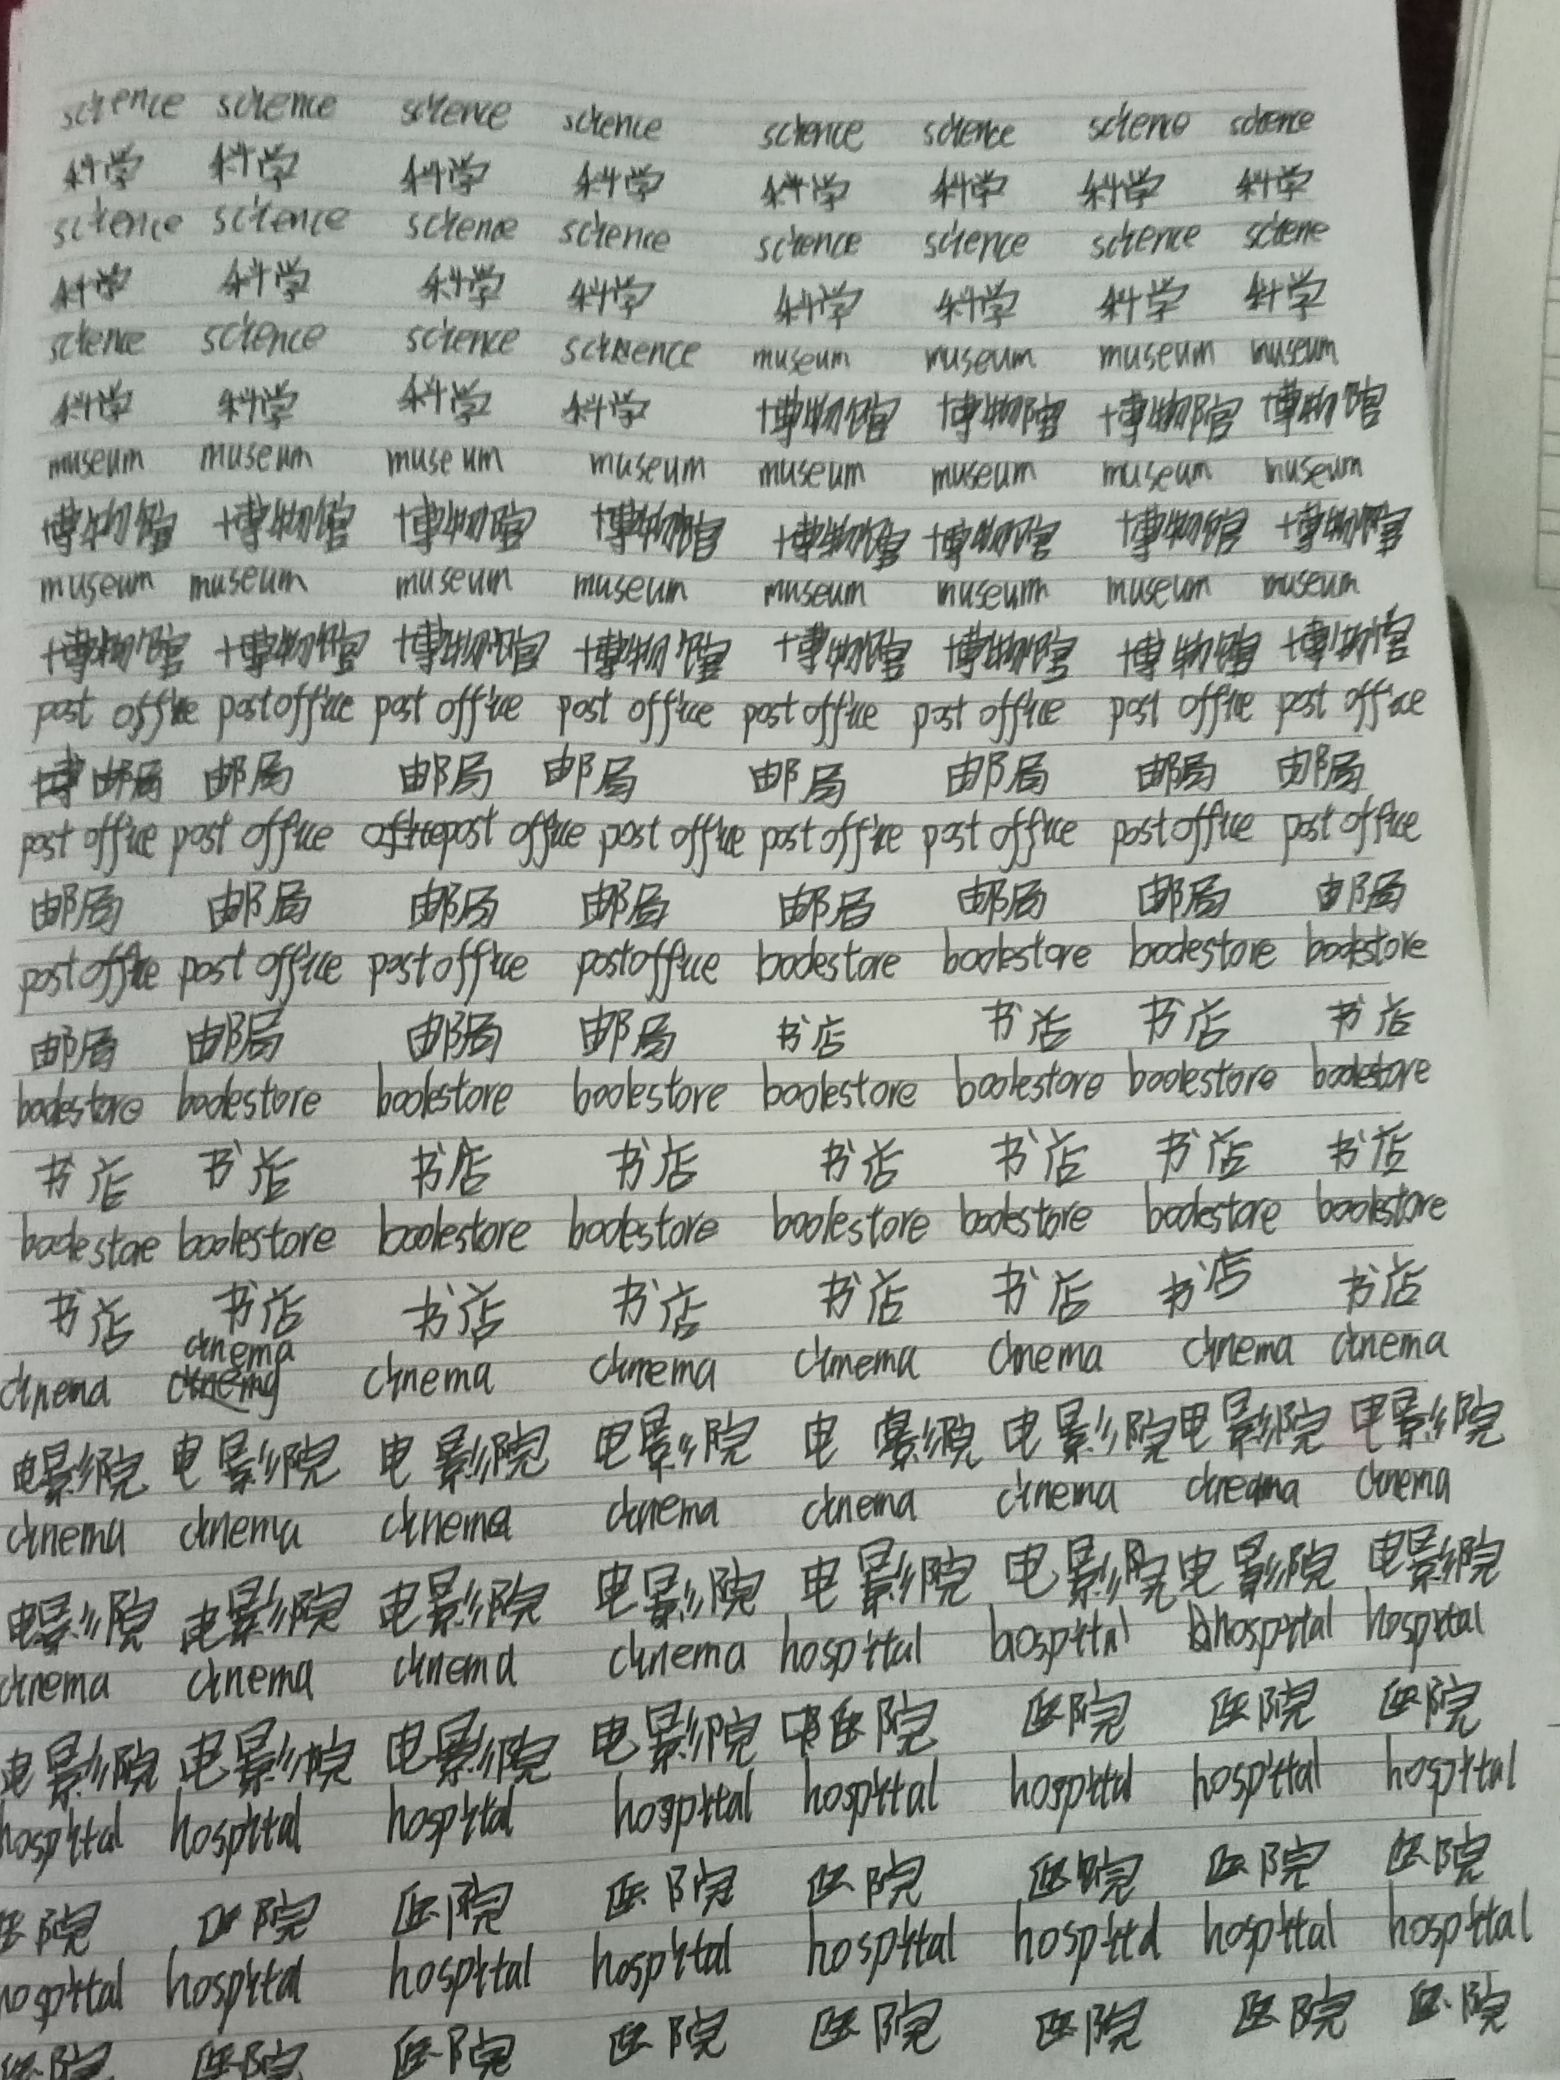 science science science science science science science science
科学 科学 科学 科学 科学 科学 科学 科学
science science science science science science science sciene
科学 科学 科学 科学 科学 科学 科学 科学
science science science science museum museum museum museum
科学 科学 科学 科学 博物馆 博物馆 博物馆 博物馆
museum museum museum museum museum museum museum museum
博物馆 博物馆 博物馆 博物馆 博物馆 博物馆 博物馆 博物馆
museum museum museum museum museum museum museum museum
博物馆 博物馆 博物馆 博物馆 博物馆 博物馆 博物馆 博物馆
post office post office post office post office post office post office post office post office
邮局 邮局 邮局 邮局 邮局 邮局 邮局 邮局
post office post office post office post office post office post office post office post office
邮局 邮局 邮局 邮局 邮局 邮局 邮局 邮局
post office post office post office post office bookstore bookstore bookstore bookstore
邮局 邮局 邮局 邮局 书店 书店 书店 书店
bookstore bookstore bookstore bookstore bookstore bookstore bookstore bookstore
书店 书店 书店 书店 书店 书店 书店 书店
bookstore bookstore bookstore bookstore bookstore bookstore bookstore bookstore
书店 书店 书店 书店 书店 书店 书店 书店
cinema cinema cinema cinema cinema cinema cinema cinema
电影院 电影院 电影院 电影院 电影院 电影院 电影院 电影院
cinema cinema cinema cinema cinema cinema cinema
电影院 电影院 电影院 电影院 电影院 电影院 电影院 电影院
cinema cinema cinema cinema hospital hospital hospital hospital
电影院 电影院 电影院 电影院 医院 医院 医院 医院
hospital hospital hospital hospital hospital hospital hospital hospital
医院 医院 医院 医院 医院 医院 医院 医院
hospital hospital hospital hospital hospital hospital hospital hospital
医院 医院 医院 医院 医院 医院 医院 医院